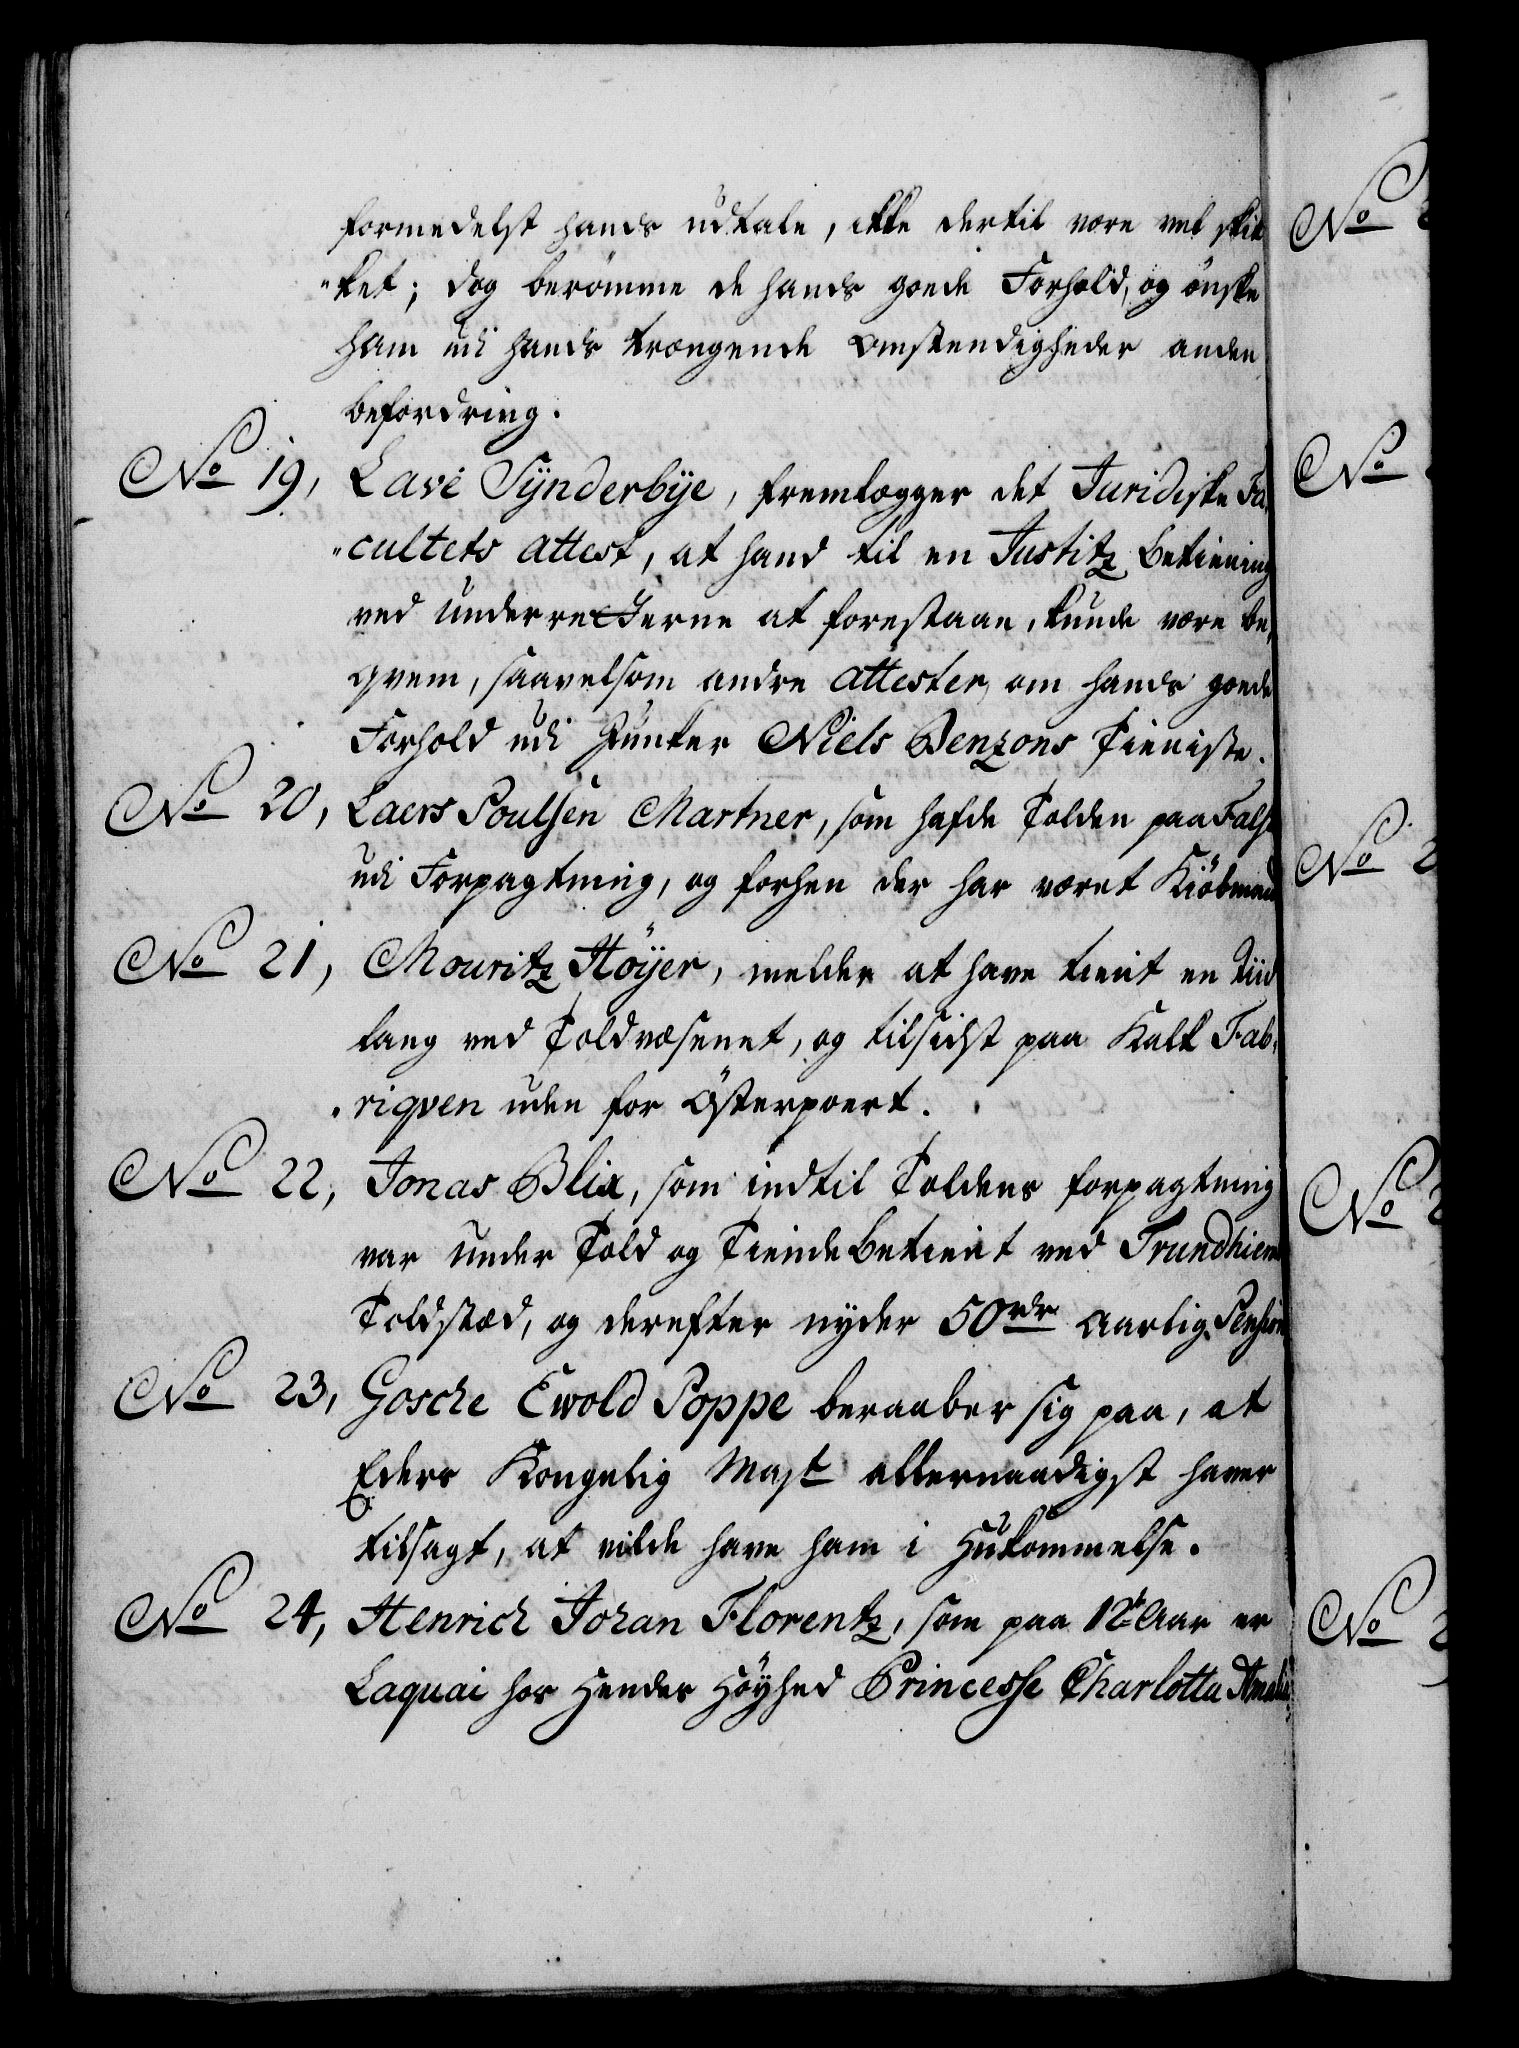 formedelst hands udtale, ikke dertil være vel skik
"ket; dog berømme de hands goede Forhold, og ønske
ham udi hands trængende Omstendigheder anden
befordring.
No 19, Lave Sÿnderbÿe, fremlægger det Juridiske Fa,
"cultets attest, at hand til en Justitz betiening
ved Underretterne at forestaae, kunde være be,
qvem, saavelsom andre attester, om hands goede
Forhold udi Junker Niels Benzons Tieniste.
No 20, Laers Poulsen Martner, som hafde Tolden paa Fals
udi Forpagtning, og forhen der har været Kiöbmand
No 21, Mouritz Höÿer, melder at have tient en tiid
lang ved Toldvæsenet, og tilsidst paa Kalk Fab,
riqven uden for Österpoert.
No 22, Jonas Blix, som indtil Toldens forpagtning
var Under Told og Tiende betient ved Trundhiems
Toldsted, og derefter nyder 50 rdr aarlig Pension
No 23, Gosche Ewold Poppe beraaber sig paa, at
Eders Kongelig Mayt allernaadigst haver
tilsagt, at vilde have ham i Hukommelse.
No 24, Henrich Johan Florentz, som paa 12te Aar er
Laquai hos Hendes Höyhed Princesse Charlotta Amalia
No
No
No 2
No 2
No 2